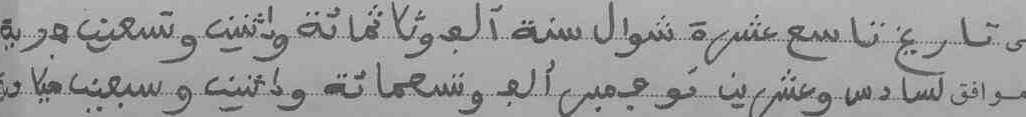 تاريخ تاسع عشرة شوال سنة ألف وثلاثمائة واثنين وتسعين هجرية
موافق لسادس وعشرين نوجمبر ألف وتسعمائة واثنين وسبعين ميلادية